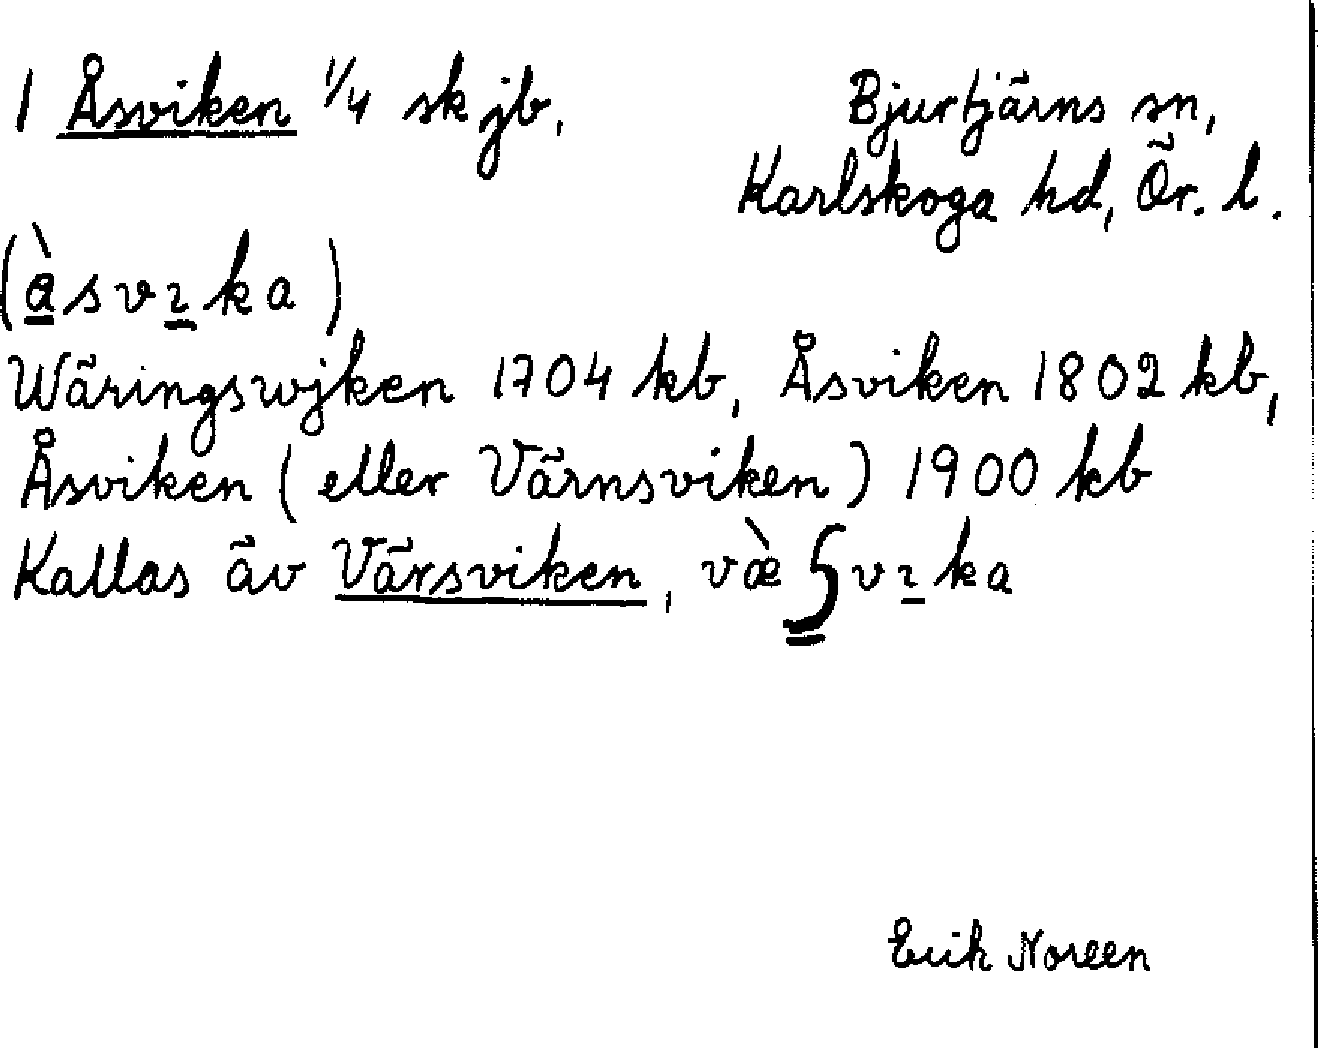 1 Åsviken 1/4 sk jb,
Bjurtjärns sn,
Karlskoga hd, Ör. l.
(àsvıka)
Wäringswjken 1704 kb, Åsviken 1802 kb,
Åsviken (eller Värnsviken) 1900 kb
Kallas äv Värsviken, væ̀ʂvıka
Erik Noreen